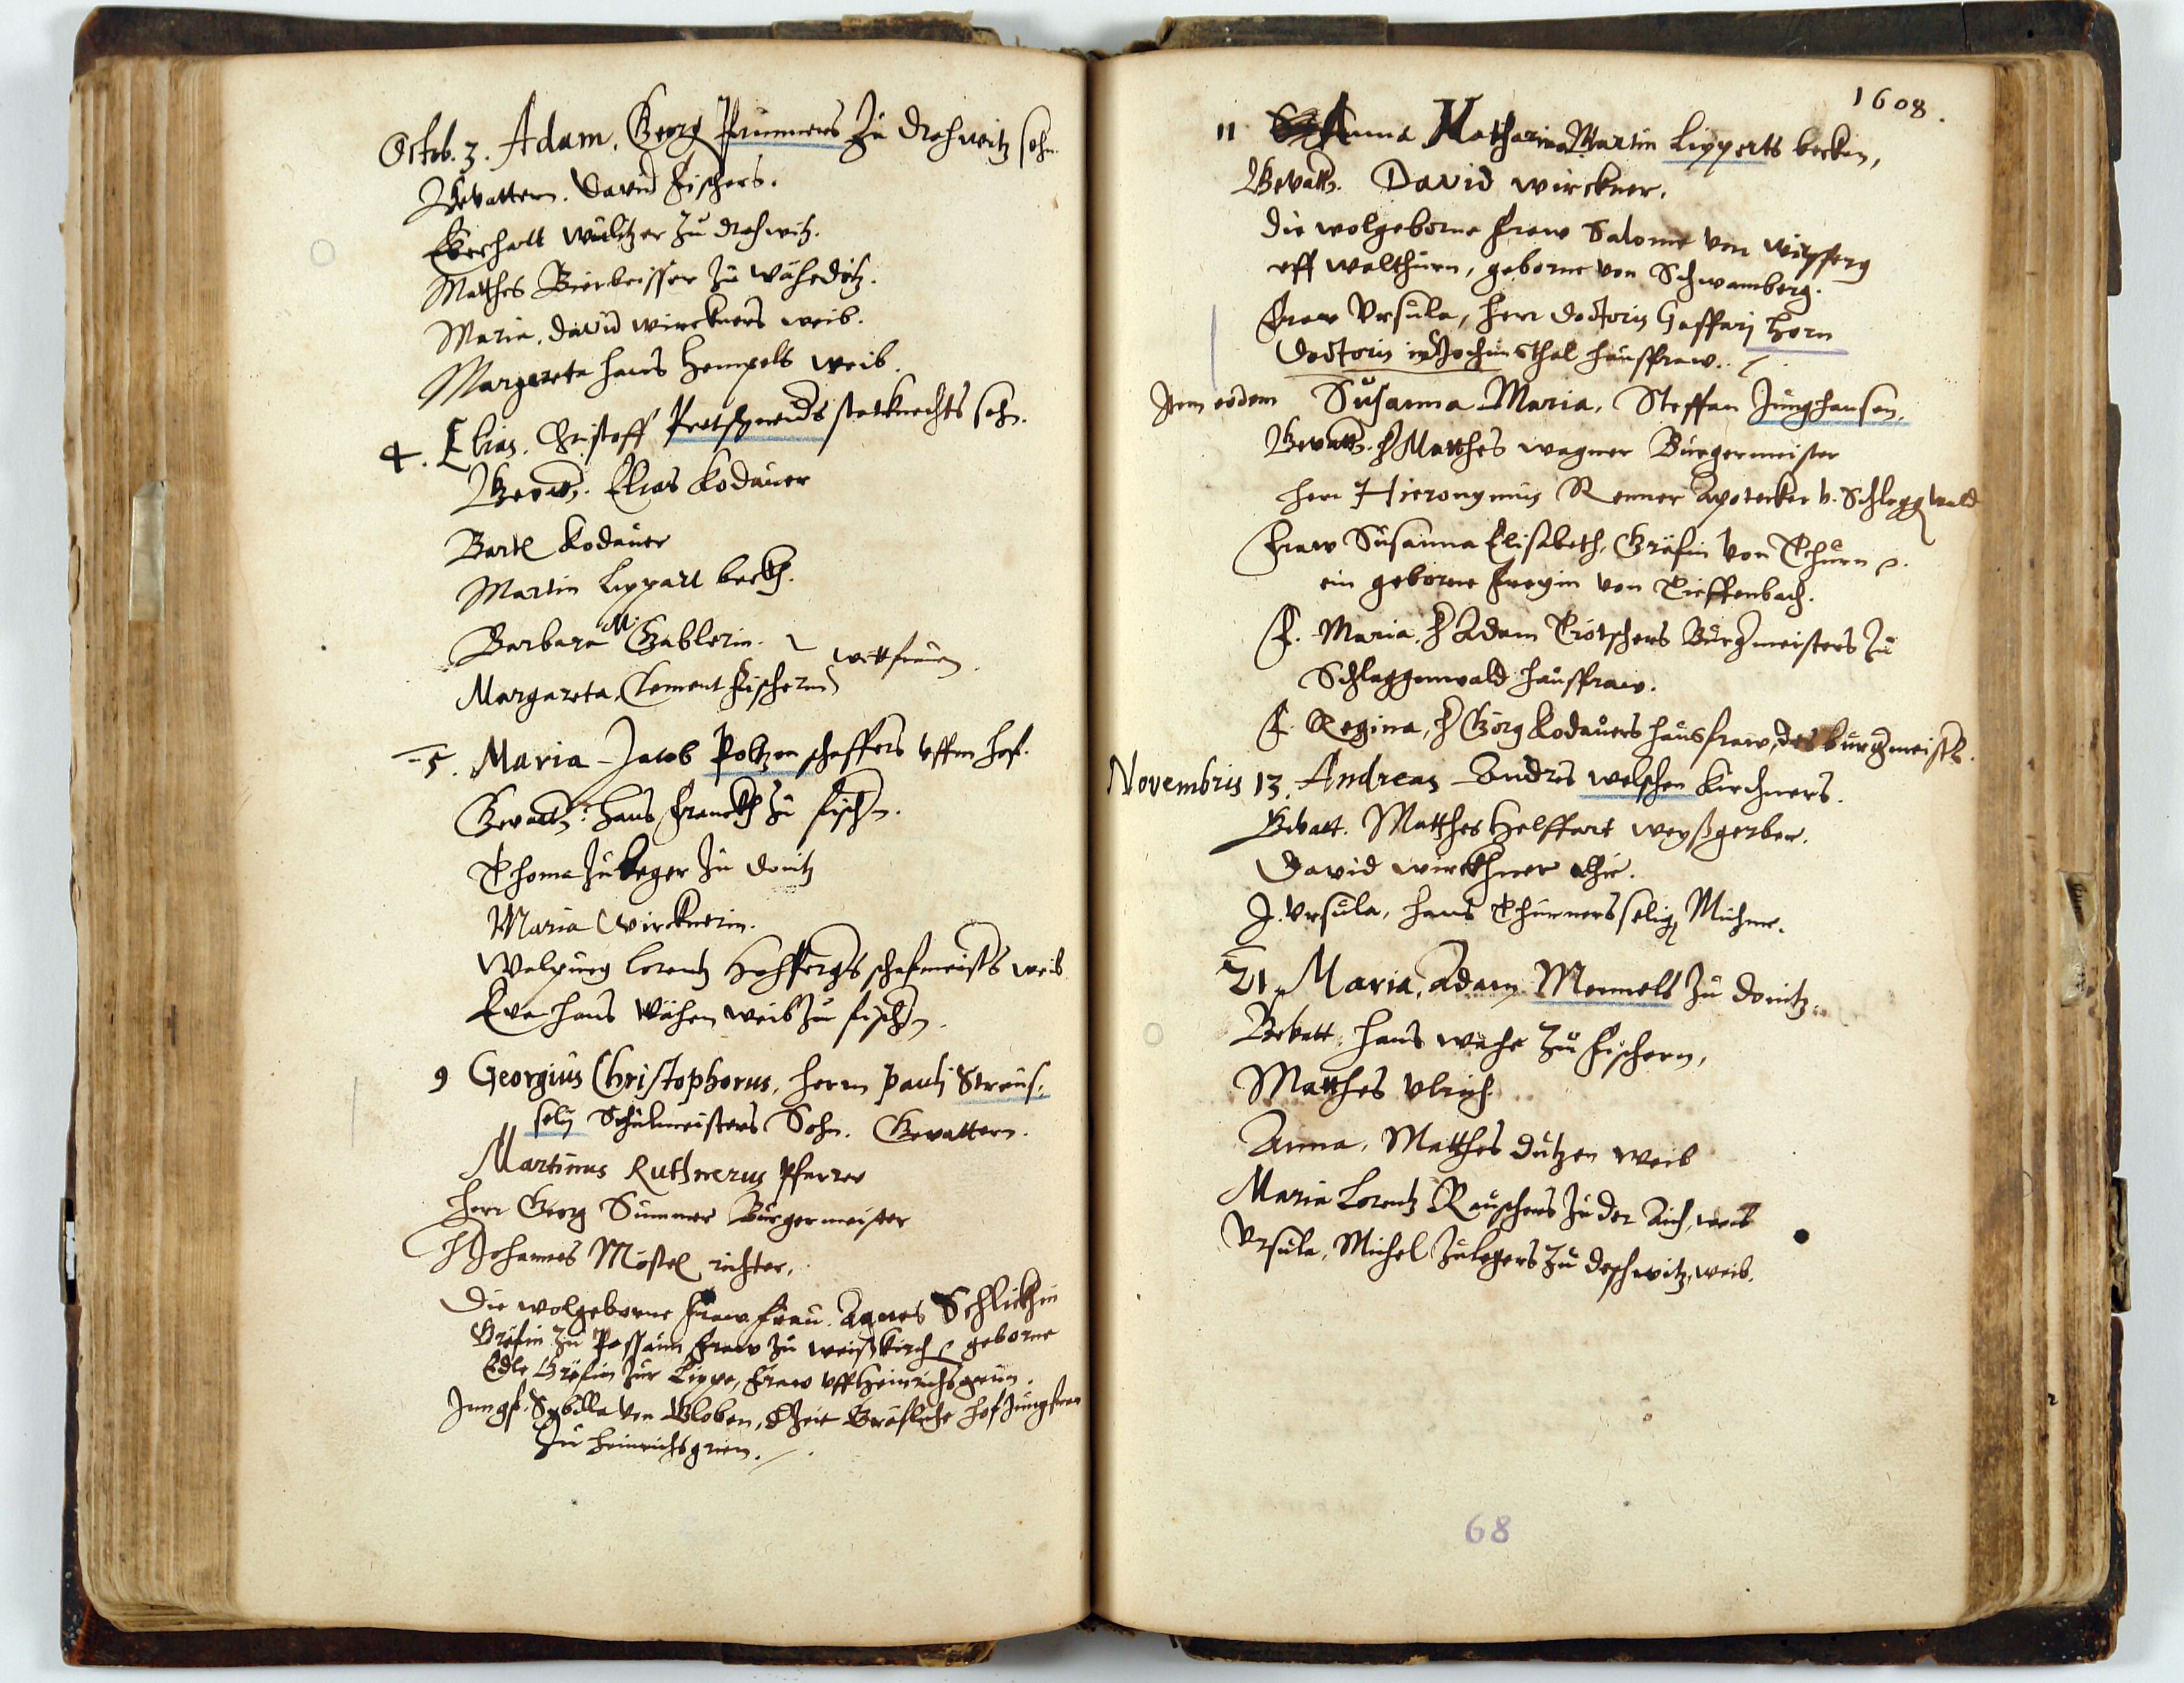 Octob. 3. Adam, Georg Prunners zu Drahwitz sohn
Gevattern. David Fischers.
Eberhartt Wultzer zu Drahwitz.
Matthes Bierbeisser zu
Maria, David Wirckners weib.
Margareta Hans Hempels weib.
4. Elias. Christoff Pretschneids statknechts sohn.
Gevatt. Elias Kodauer
Bartl Kodauer
Martin Lippart beckh.
Barbara M. Gablerin. wittfrauen.
Margareta, Clement Fischerin
5. Maria Jacob Poltzen schaffers uffm hof.
Gevatt: Hans Franckh zu Fischn.
Thoma Zuleger zu Donitz
Maria Wircknerin.
Walpurg Lorentz schafmeisters weib
Eva Hans Wähen weib zu Fischn.
9 Georgius Christophorus, Herrn Pauli Straus,
selij Schulmeisters Sohn. Gevattern.
Martinus Ruthnerus Pfarrer
Herr Georg Summer Burgermeister
H Johannes Möstel richter,
Die wolgeborne Fraw Frau. Agnes Schlickhin
Gräfin zu Passaun Fraw zu Weißkirch geborne
Edle Gräfin zur Lippe, Fraw uff Heinrichsgrün.
Jungf. Sybilla von Globen, Gräfliche hofjungfraw
zu Heinrichsgrien.
1608.
11 Anna Katharina Martin Lipperts becken,
Gevattr. David Wirckner.
Die wolgeborne Fraw Salome von
uff Walthurn, geborne von Schwamberg.
Fraw Ursula, Herr Doctoris Casparj Horn
Doctoris in Jochimsthal hausfraw.
Item eodem Susanna Maria, Steffan Junghansen,
Gevattr. H Matthes Wagner Burgermeister
Herr Hieronymus Renner Apotecker v. Schlaggwald
Fraw Susanna Elisabeth, Gräfin von Thurn
ein geborne Freyin von Tieffenbach.
F. Maria, H Adam Trötschers Burgmeisters zu
Schlaggenwald hausfraw.
F. Regina, H Görg Kodauers hausfraw, des burgmeisters.
Novembris 13. Andreas Andres Welschen Kirchners.
Gevatt. Matthes Helffart weyßgerber.
David Wirckhner
J. Ursula, Hans Thurners selig Muhme.
21. Maria, Adam Memmels zu Donitz.
Gevatt. Hans Wähe zu Fischern,
Matthes Ulrich.
Anna, Matthes Dutzen weib
Maria Lorentz Rauschers zu der Aich, weib
Ursula, Michel Zulegers zu Drahwitz, weib.
68